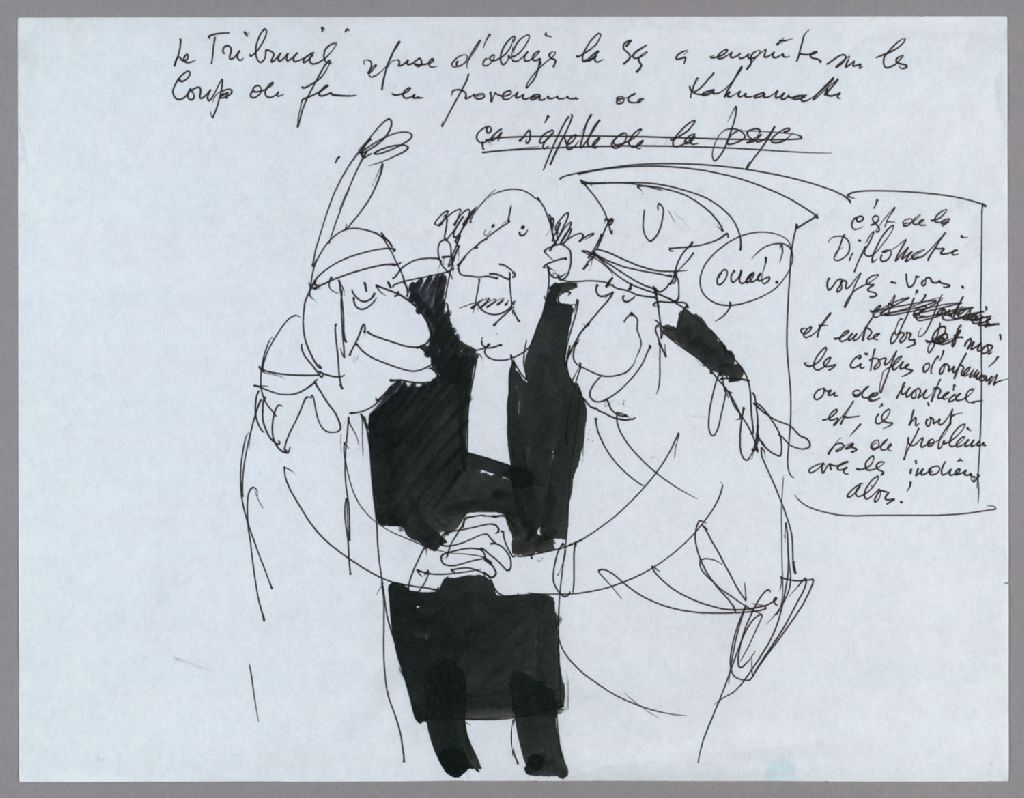 Le Tribunal refuse d'obliger la SQ a enquêter sur les
Coup de feu en provenance de Kahnawake
ça s'appelle de la
ouais!
c'est de la
Diplomatie
voyez-vous.
et entre vous et moi,
les citoyens d'outremont
ou de Montréal
est, ils n'ont
pas de problème
avec les indiens
alors!